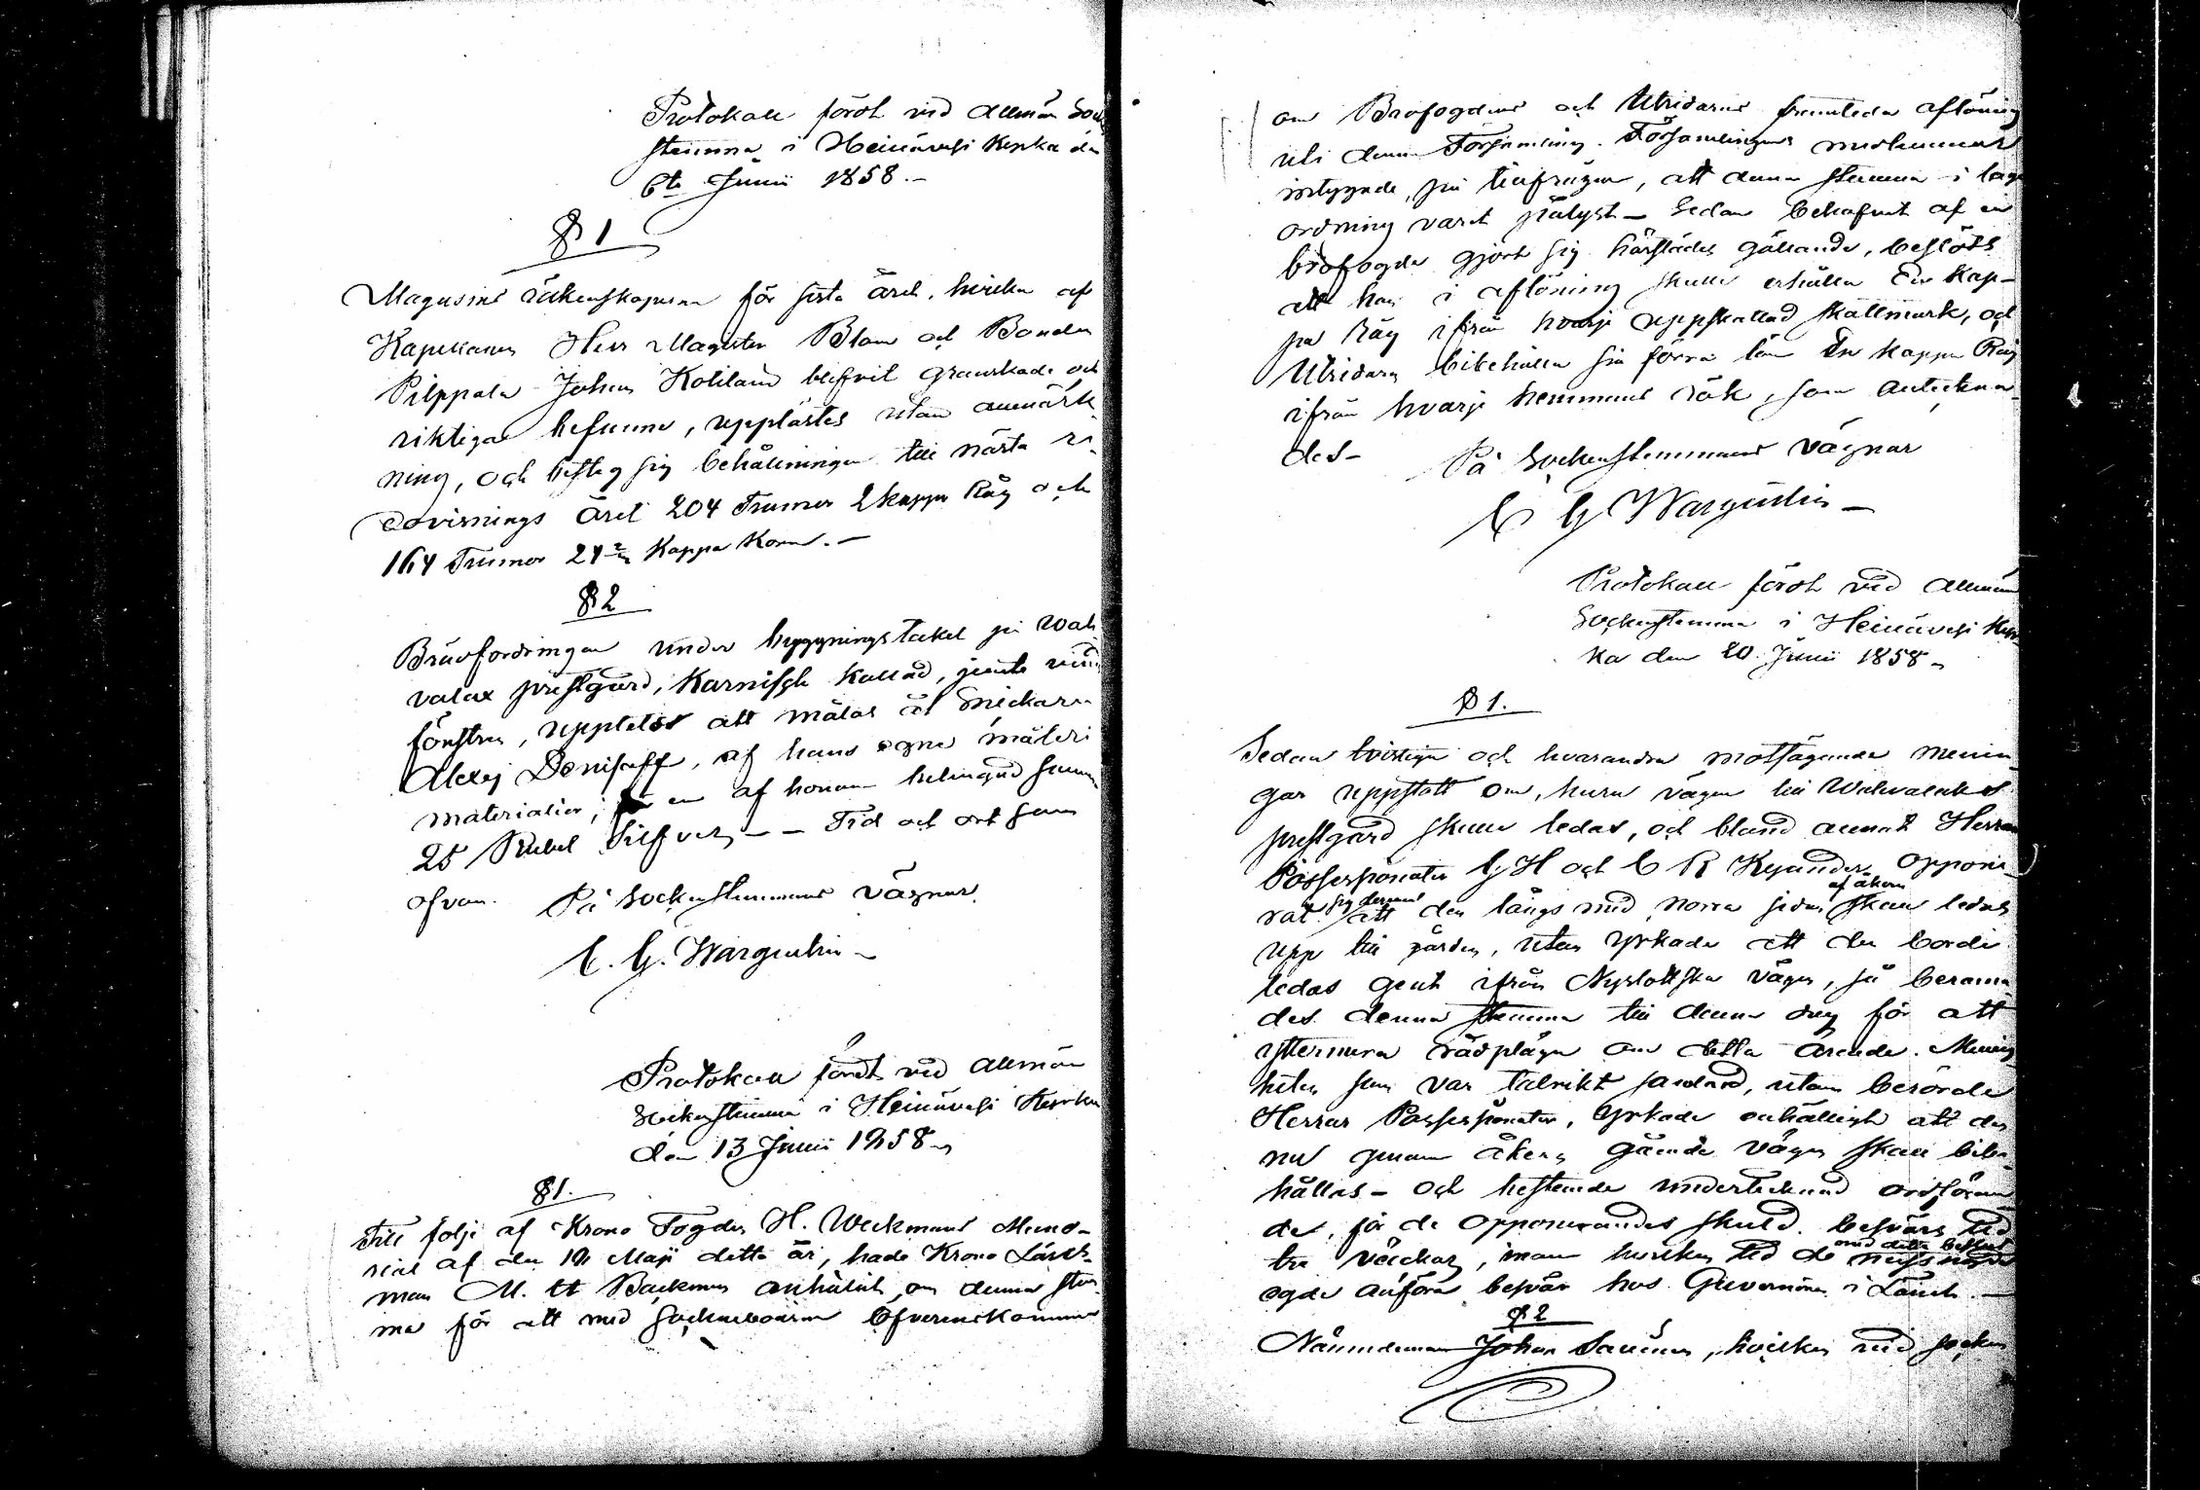 Protokoll fördt vid Allmän Sock
stämma i Heinävesi Kyrka den
6te Junii 1858.-
§ 1
Magasins räkenskaperna för sista året, hvilka af
Kapellanen Herr Magister Blom och Bonden
Pilppala Johan Kolilain blifvit granskade och
riktiga befunne, upplästes utan anmärk-
ning, och besteg sig behållningen till nästa re-
dovisnings året 204 Tunnor 2 kappar Råg och
164 Tunnor 24 Kappar Korn.-
§ 2
Brädfordringen under byggningstaket på Wah
valax prestgård, Karnisch kallad, jemte
fönstren, uppläts att målas åt Snickaren
Alexej Denisoff, af hans egna
materialier, för en af honom betingad summa
25 Rubel Silfver, - - Tid och ort som
ofvan. På Sockenstämmans vägnar
C. G. Wargentin -
Protokoll fördt vid Allmän
Sockenstämma i Heinävesi Kyrka
den 13 Junii 1858 -
§ 1.
Till följe af Krono Fogden H. Weckmans Memo-
rial af den 12 Maji detta år, hade Krono Läns-
man M. Backman anhållit, om denna stäm
ma för att med sockneboarne öfverenskomma
om Brofogdens och Utridarens framtida aflöning
uti denna Församling. Församlingens medlemmar
intygade, på tillfrågan, att denna stämma i laga
ordning varit pålyst - Sedan behofvet af en
brofogde gjort sig härstädes gällande, beslöts
att han i aflöning skulle erhålla En Kap-
pa Råg ifrån hvarje uppskattad skattmark, och
Utridaren bibehålla sin förra lön En kappa Råg
ifrån hvarje hemmans rök, som anteckna-
des- På Sockenstämmans vägnar
C G Wargentin -
Protokoll fördt vid Allmän
Sockenstämma i Heinävesi Kyr
ka den 20 Junii 1858 -
§ 1.
Sedan tvistiga och hvarandra motsägande menin-
gar uppstått om, huru vägen till Wahvalaks
prestgård skulle ledas, och bland annat Herrar
Possessionater G H och C R Kyander opponi-
rat sig deremot att den längs med norra sidan af åkern skulle ledas
upp till gården, utan yrkade att den borde
ledas gent ifrån Nyslottska vägen, så berama-
des denna stämma till denna dag för att
yttermera rådpläga om detta ärende. Menig-
heten som var talrikt samlad, utom berörde
Herrar Possessionater, yrkade enhälligt att den
nu genom åkern gående vägen skall bibe-
hållas - och bestämde undertecknad ordföran
de, för de opponerandes skuld, besvärs tid
tre veckor, inom hvilken tid de med detta beslut missnöjde
egde anföra besvär hos Guvernören i Länet. -
§ 2
Nämndeman Johan Savinen, hvilken vid socken